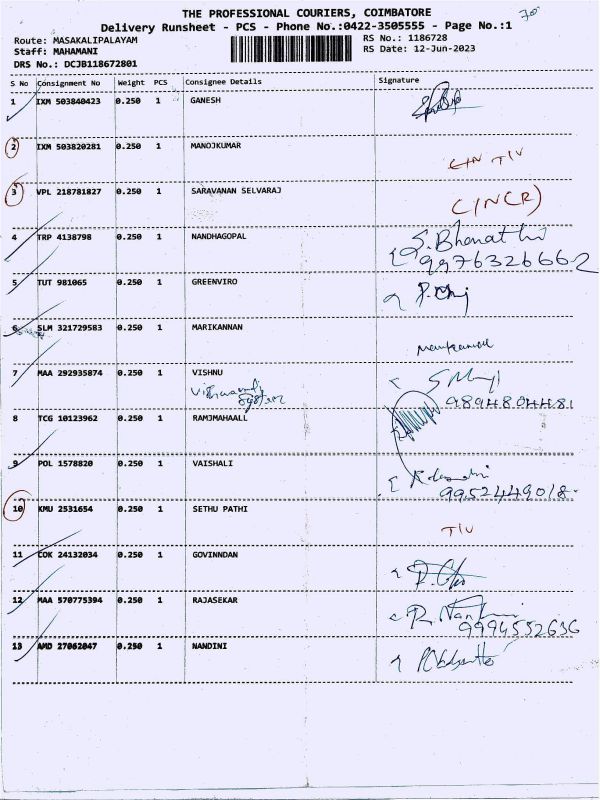 THE PROFESSIONAL COURIERS, COIMBATORE
70
Delivery Runsheet - PCS - Phone No.:0422-3505555 - Page No.:1
Route: MASAKALIPALAYAM RS No.: 1186728
Staff: MAHAMANI RS Date: 12-Jun-2023
DRS No.: DCJB118672801
S No Consignment No Weight PCS Consignee Details Signature
1 IXM 503840423 0.250 1 GANESH
2 IXM 503820281 0.250 1 MANOJKUMAR
3 VPL 218781827 0.250 1 SARAVANAN SELVARAJ
C(NCR)
4 TRP 4138798 0.250 1 NANDHAGOPAL S. Bharathi
9976326662
5 TUT 981065 0.250 1 GREENVIRO
6 SLM 321729583 0.250 1 MARIKANNAN
7 MAA 292935874 0.250 1 VISHNU
System 9894804481
8 TCG 10123962 0.250 1 RAMJMAHAALL
9 POL 1578820 0.250 1 VAISHALI
9952449018
10 KMU 2531654 0.250 1 SETHU PATHI
TIV
11 COK 24132034 0.250 1 GOVINNDAN
12 MAA 570775394 0.250 1 RAJASEKAR
9994552636
13 AMD 27062047 0.250 1 NANDINI